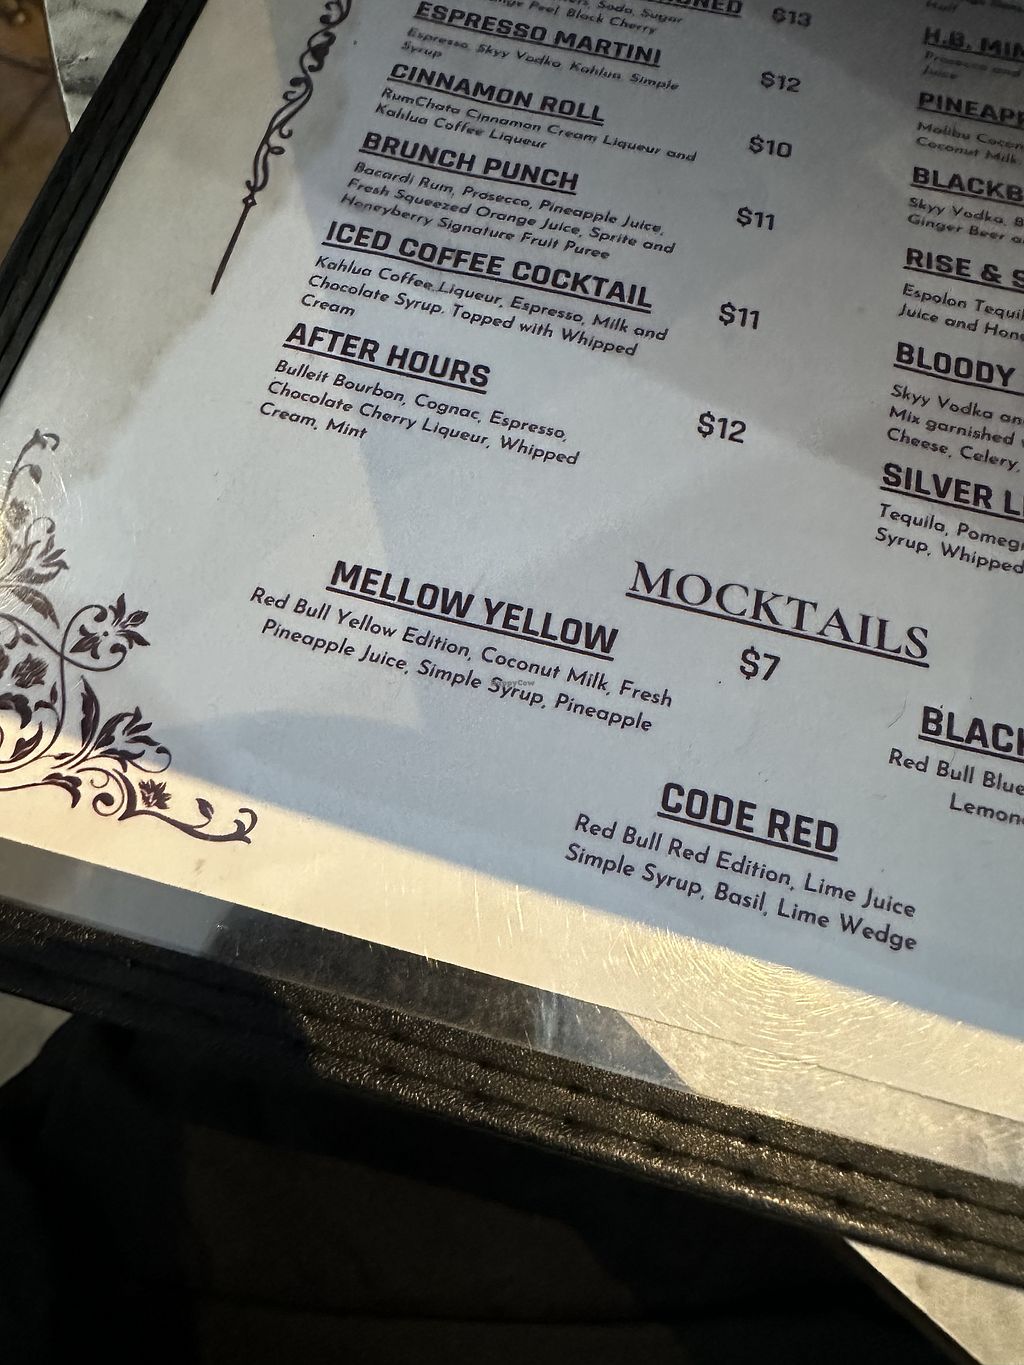 $13
Soda, Sugar
Peel Black Cherry
ESPRESSO MARTINI
Espresso, Skyy Vodka, Kahlua, Simple
Syrup
$12
CINNAMON ROLL
RumChata Cinnamon Cream Liqueur and
Kahlua Coffee Liqueur
$10
BRUNCH PUNCH
Bacardi Rum, Prosecco, Pineapple Juice,
Fresh Squeezed Orange Juice, Sprite and
Honeyberry Signature Fruit Puree
$11
ICED COFFEE COCKTAIL
Kahlua Coffee Liqueur, Espresso, Milk and
Chocolate Syrup, Topped with Whipped
Cream
$11
AFTER HOURS
Bulleit Bourbon, Cognac, Espresso,
Chocolate Cherry Liqueur, Whipped
Cream, Mint
$12
H.B.
Prosecco and
Juice
Malibu
Coconut Milk,
Skyy Vodka,
Ginger Beer
RISE &
Espolon
Juice and
BLOODY
Skyy Vodka
Mix garnished
Cheese, Celery,
SILVER
Tequila,
Syrup, Whipped
MOCKTAILS
$7
MELLOW YELLOW
Red Bull Yellow Edition, Coconut Milk, Fresh
Pineapple Juice, Simple Syrup, Pineapple
Red Bull Blue
CODE RED
Red Bull Red Edition, Lime Juice
Simple Syrup, Basil, Lime Wedge